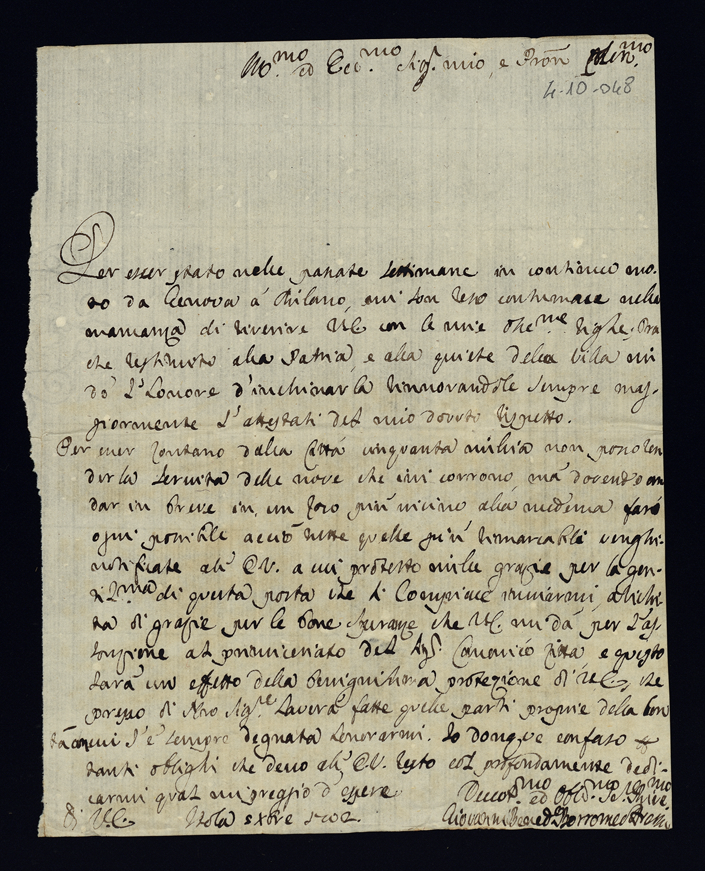 Ill.mo ed Ecc.mo Sig.r mio, e Pron
4-10-048
Per esser stato nelle passate settimane in continuo mo-
to da Genova à Milano, mi son reso contumace nella
mancanza di riverire V.E. con le mie righe; Ora
che restituito alla Patria, e alla quiete della Villa mi
dò l'honore d'inchinarla rinnovandole sempre mag-
giormente l'attestati del mio dovuto rispetto.
Per esser lontano dalla Città cinquanta miglia non posso ren
derla servita delle nove che ivi corrono, mà dovendo an
dar in breve in un loco più vicino alla medema farò
ogni possibile acciò tutte quelle più rimarcabili venghi-
notificate all' E.V. a cui protesto mille grazie per la gen-
til.ma di questa posta che si compiace inviarmi,
di grazie per le bone speranze che V.E. mi dà per l'as-
sunzione al primiceriato del Sig.r Canonico Citta e questo
sarà un effetto della benignissima protezione di V.E., che
presso di Nro Sig.re haverà fatte quelle parti proprie della bon
tà con cui s'è sempre degnata honorarmi. Io donque confuso
tanti oblighi che devo all' E.V. resto col profondamente dedi-
carmi qual mi preggio d'essere
Devot.mo ed Obl.mo
di V.E. Isola 5 xbre 1702
Giovanni Bened Borromeo